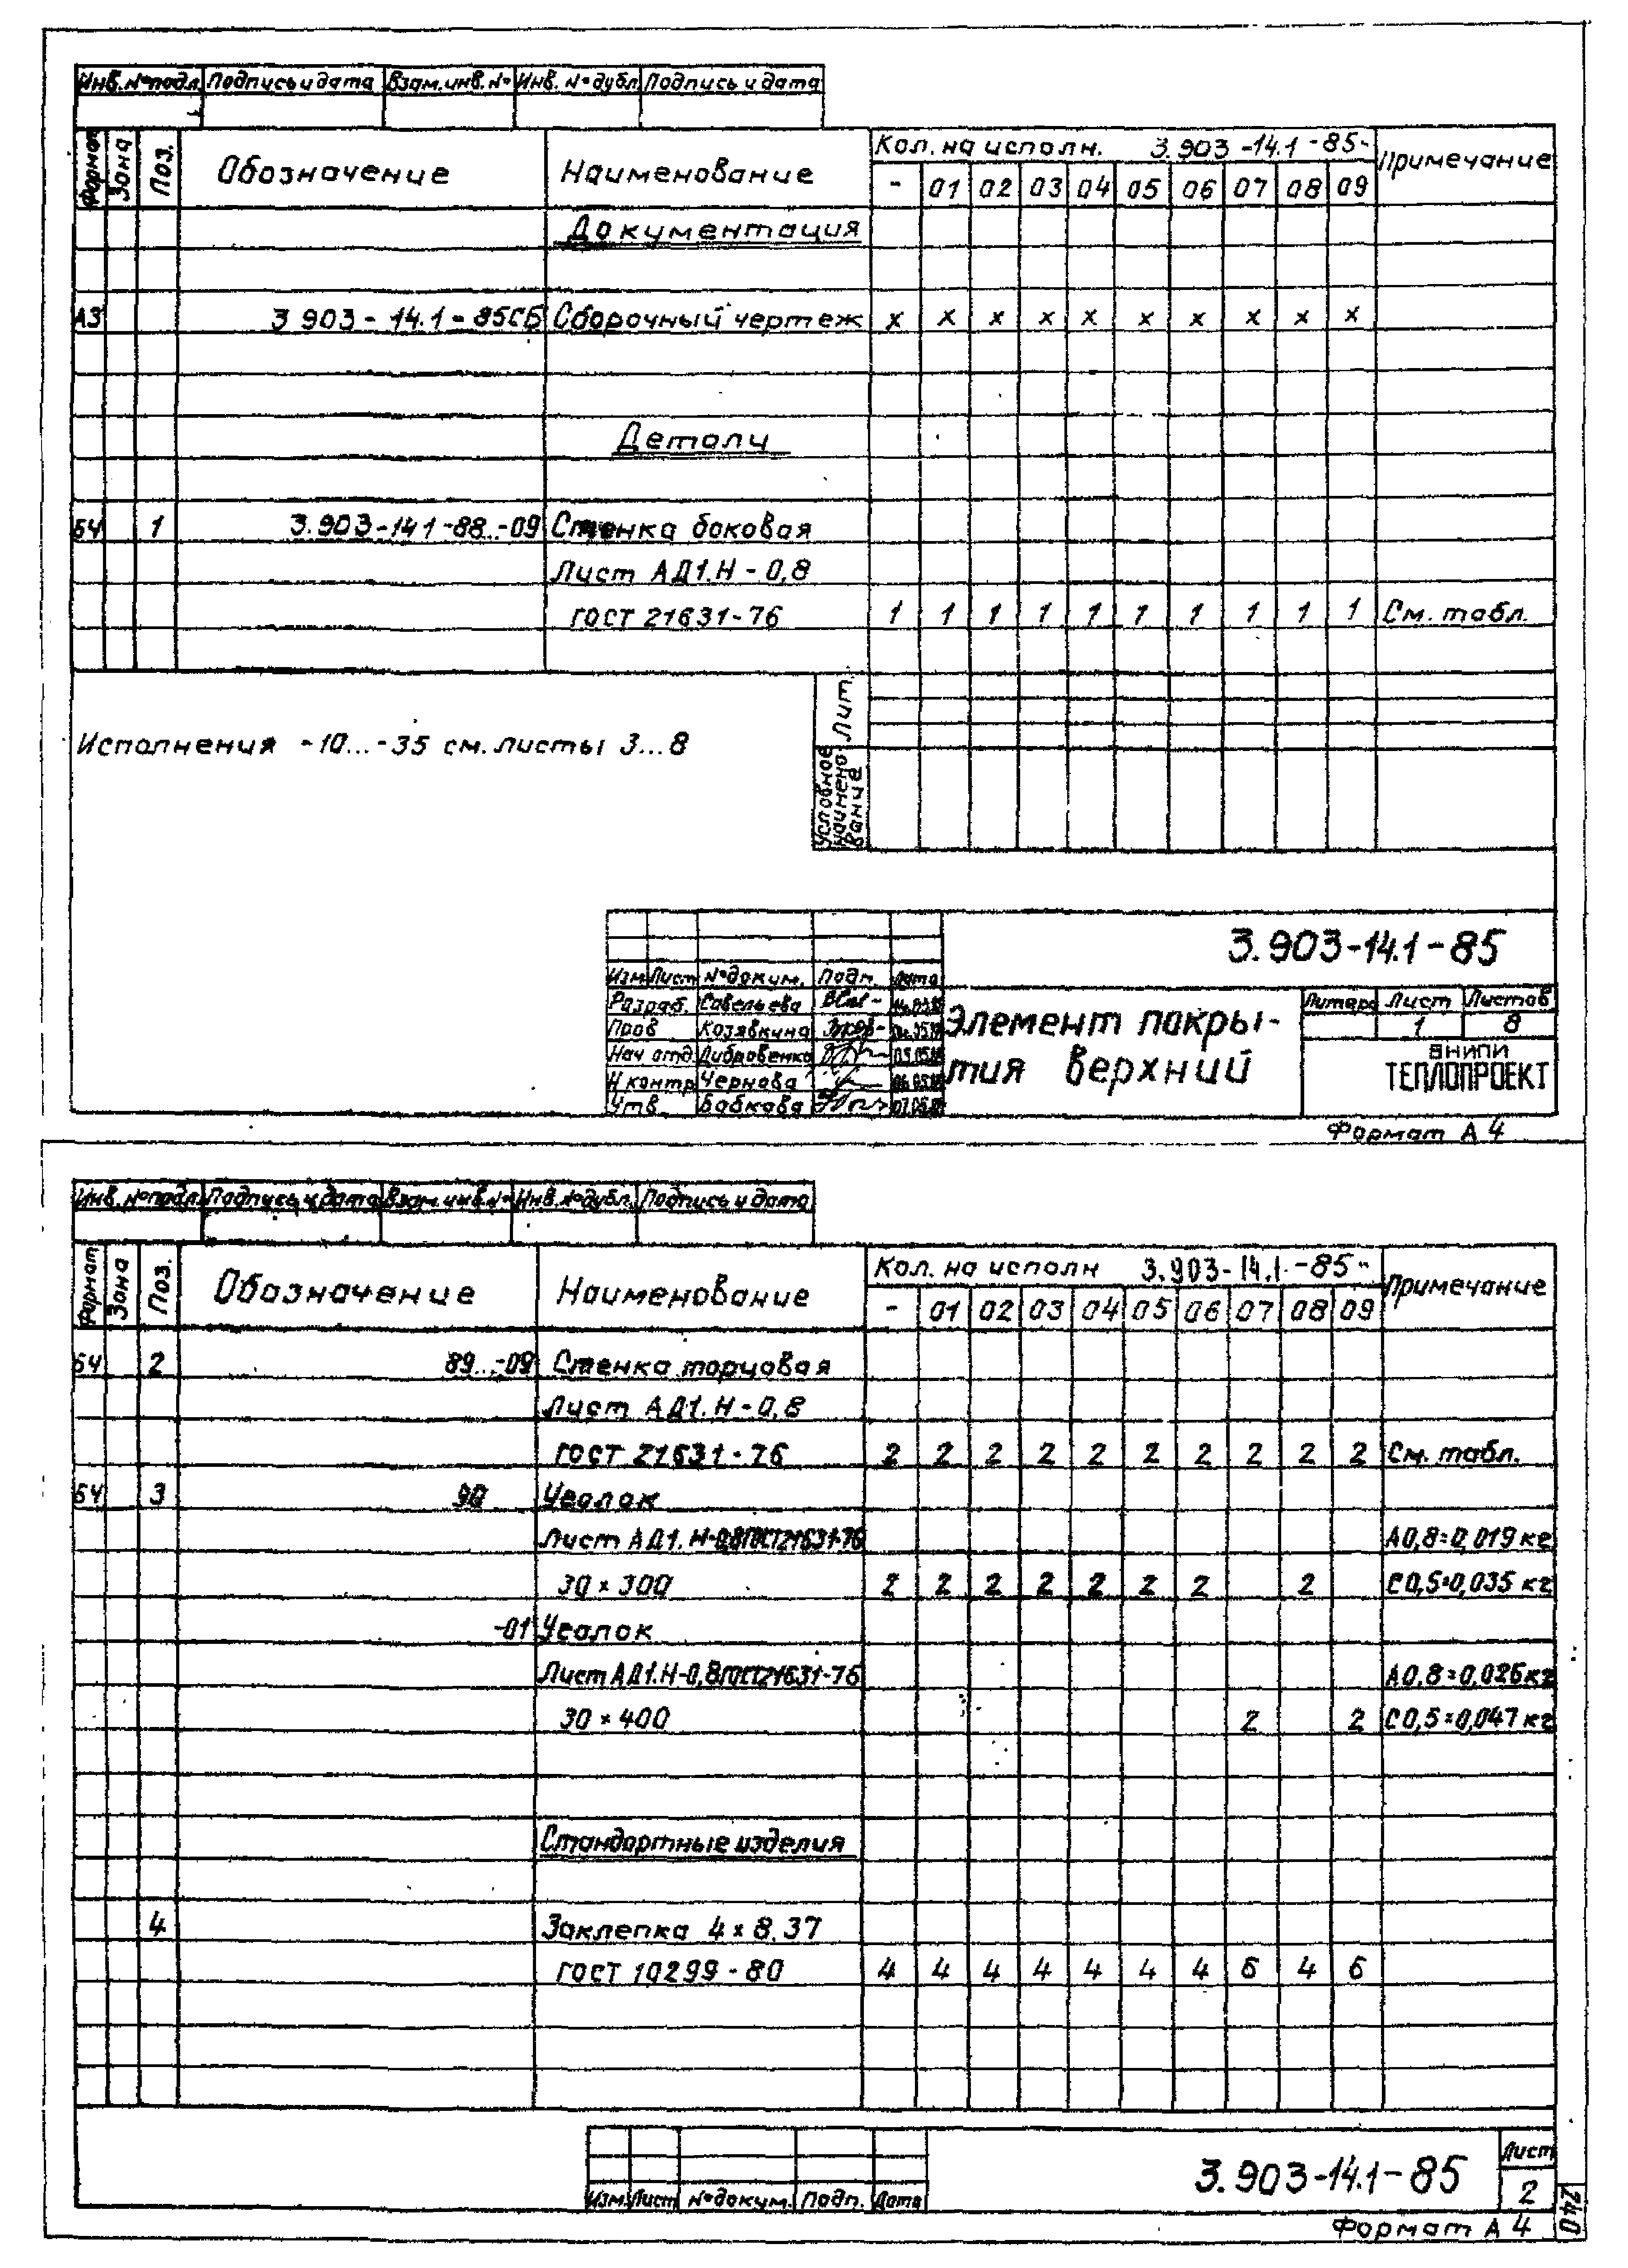 Инв.№подл. Подпись и дата Взам.инв.№ Инв.№дубл. Подпись и дата
Формат Зона Поз. Обозначение Наименование Кол. на исполн. 3.903-14.1-85- Примечание
- 01 02 03 04 05 06 07 08 09
Документация
А3 3.903-14.1-85СБ Сборочный чертеж х х х х х х х х х х
Детали
БЧ 1 3.903-14.1-88..-09 Стенка боковая
Лист АД1.Н-0,8
ГОСТ 21631-76 1 1 1 1 1 1 1 1 1 1 См. табл.
Исполнения -10...-35 см. листы 3...8
Лит.
Условное наименование
3.903-14.1-85
Изм. Лист №докум. Подп. Дата
Разраб. Савельева
Пров Козявкина
Нач отд Дибровенко
Н контр Чернова
Утв. Бабкова
Элемент покры-
тия верхний
Литера Лист Листов
1 8
ВНИПИ
ТЕПЛОПРОЕКТ
Формат А4
Инв.№подл. Подпись и дата Взам.инв.№ Инв.№дубл. Подпись и дата
Формат Зона Поз. Обозначение Наименование Кол. на исполн 3.903-14.1-85- Примечание
- 01 02 03 04 05 06 07 08 09
БЧ 2 89...-09 Стенка торцовая
Лист АД1.Н-0,8
ГОСТ 21631-76 2 2 2 2 2 2 2 2 2 2 См. табл.
БЧ 3 90 Уголок
Лист АД1.Н-0,8ГОСТ21631-76 А0,8=0,019кг
30×300 2 2 2 2 2 2 2 2 С0,5=0,035кг
-01 Уголок
Лист АД1.Н-0,8ГОСТ21631-76 А0,8=0,026кг
30×400 2 2 С0,5=0,047кг
Стандартные изделия
4 Заклепка 4×8.37
ГОСТ 10299-80 4 4 4 4 4 4 4 6 4 6
3.903-14.1-85
Лист
2
Изм. Лист №докум. Подп. Дата
Формат А4
240